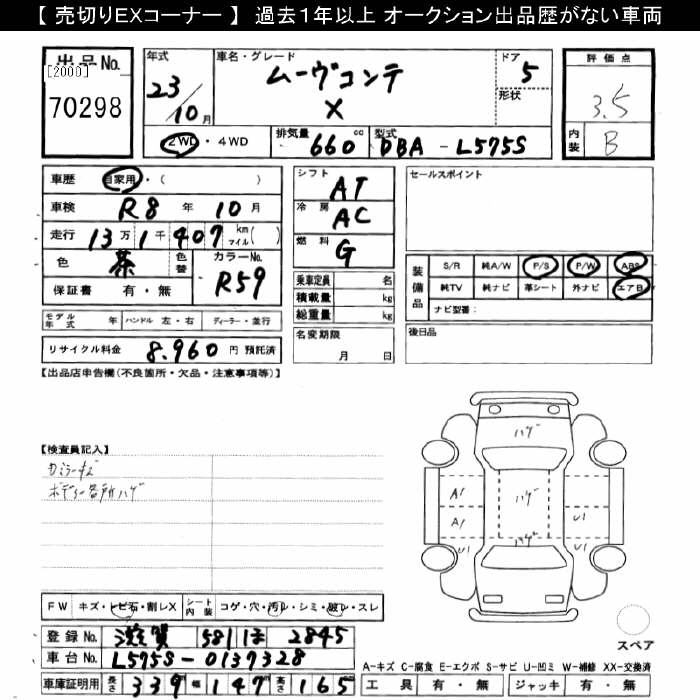 【 売切りEXコーナー 】 過去1年以上 オークション出品歴がない車両
出品No.
[2000]
70298
年式
23/10月
車名・グレード
ムーヴコンテ
X
ドア
5
形状
評価点
3.5
内装
B
2WD・4WD
排気量 660 cc
型式 DBA - L575S
車歴 自家用・( )
車検 R8 年 10 月
走行 13 万 1 千 407 km マイル( )
色 茶 色替
カラーNo. R59
保証書 有・無
シフト AT
冷房 AC
燃料 G
乗車定員 名
積載量 kg
総重量 kg
名変期限 月 日
セールスポイント
装備品
S/R 純A/W P/S P/W ABS
純TV 純ナビ 革シート 外ナビ エアB
ナビ型番:
後日品
モデル年式 年 ハンドル 左・右 ディーラー・並行
リサイクル料金 8,960 円 預託済
【出品店申告欄(不良箇所・欠品・注意事項等)】
【検査員記入】
ボディー各所ハゲ
ハゲ
ハゲ
A1
A1
U1
U1
U1
FW キズ・トビ石・割レX シート内装 コゲ・穴・汚レ・シミ・破レ・スレ
登録No. 滋賀 581 ほ 2845
車台No. L575S-0137328
車庫証明用 長さ 339 幅 147 高さ 165
スペア
A-キズ C-腐食 E-エクボ S-サビ U-凹ミ W-補修 XX-交換済
工具 有・無 ジャッキ 有・無